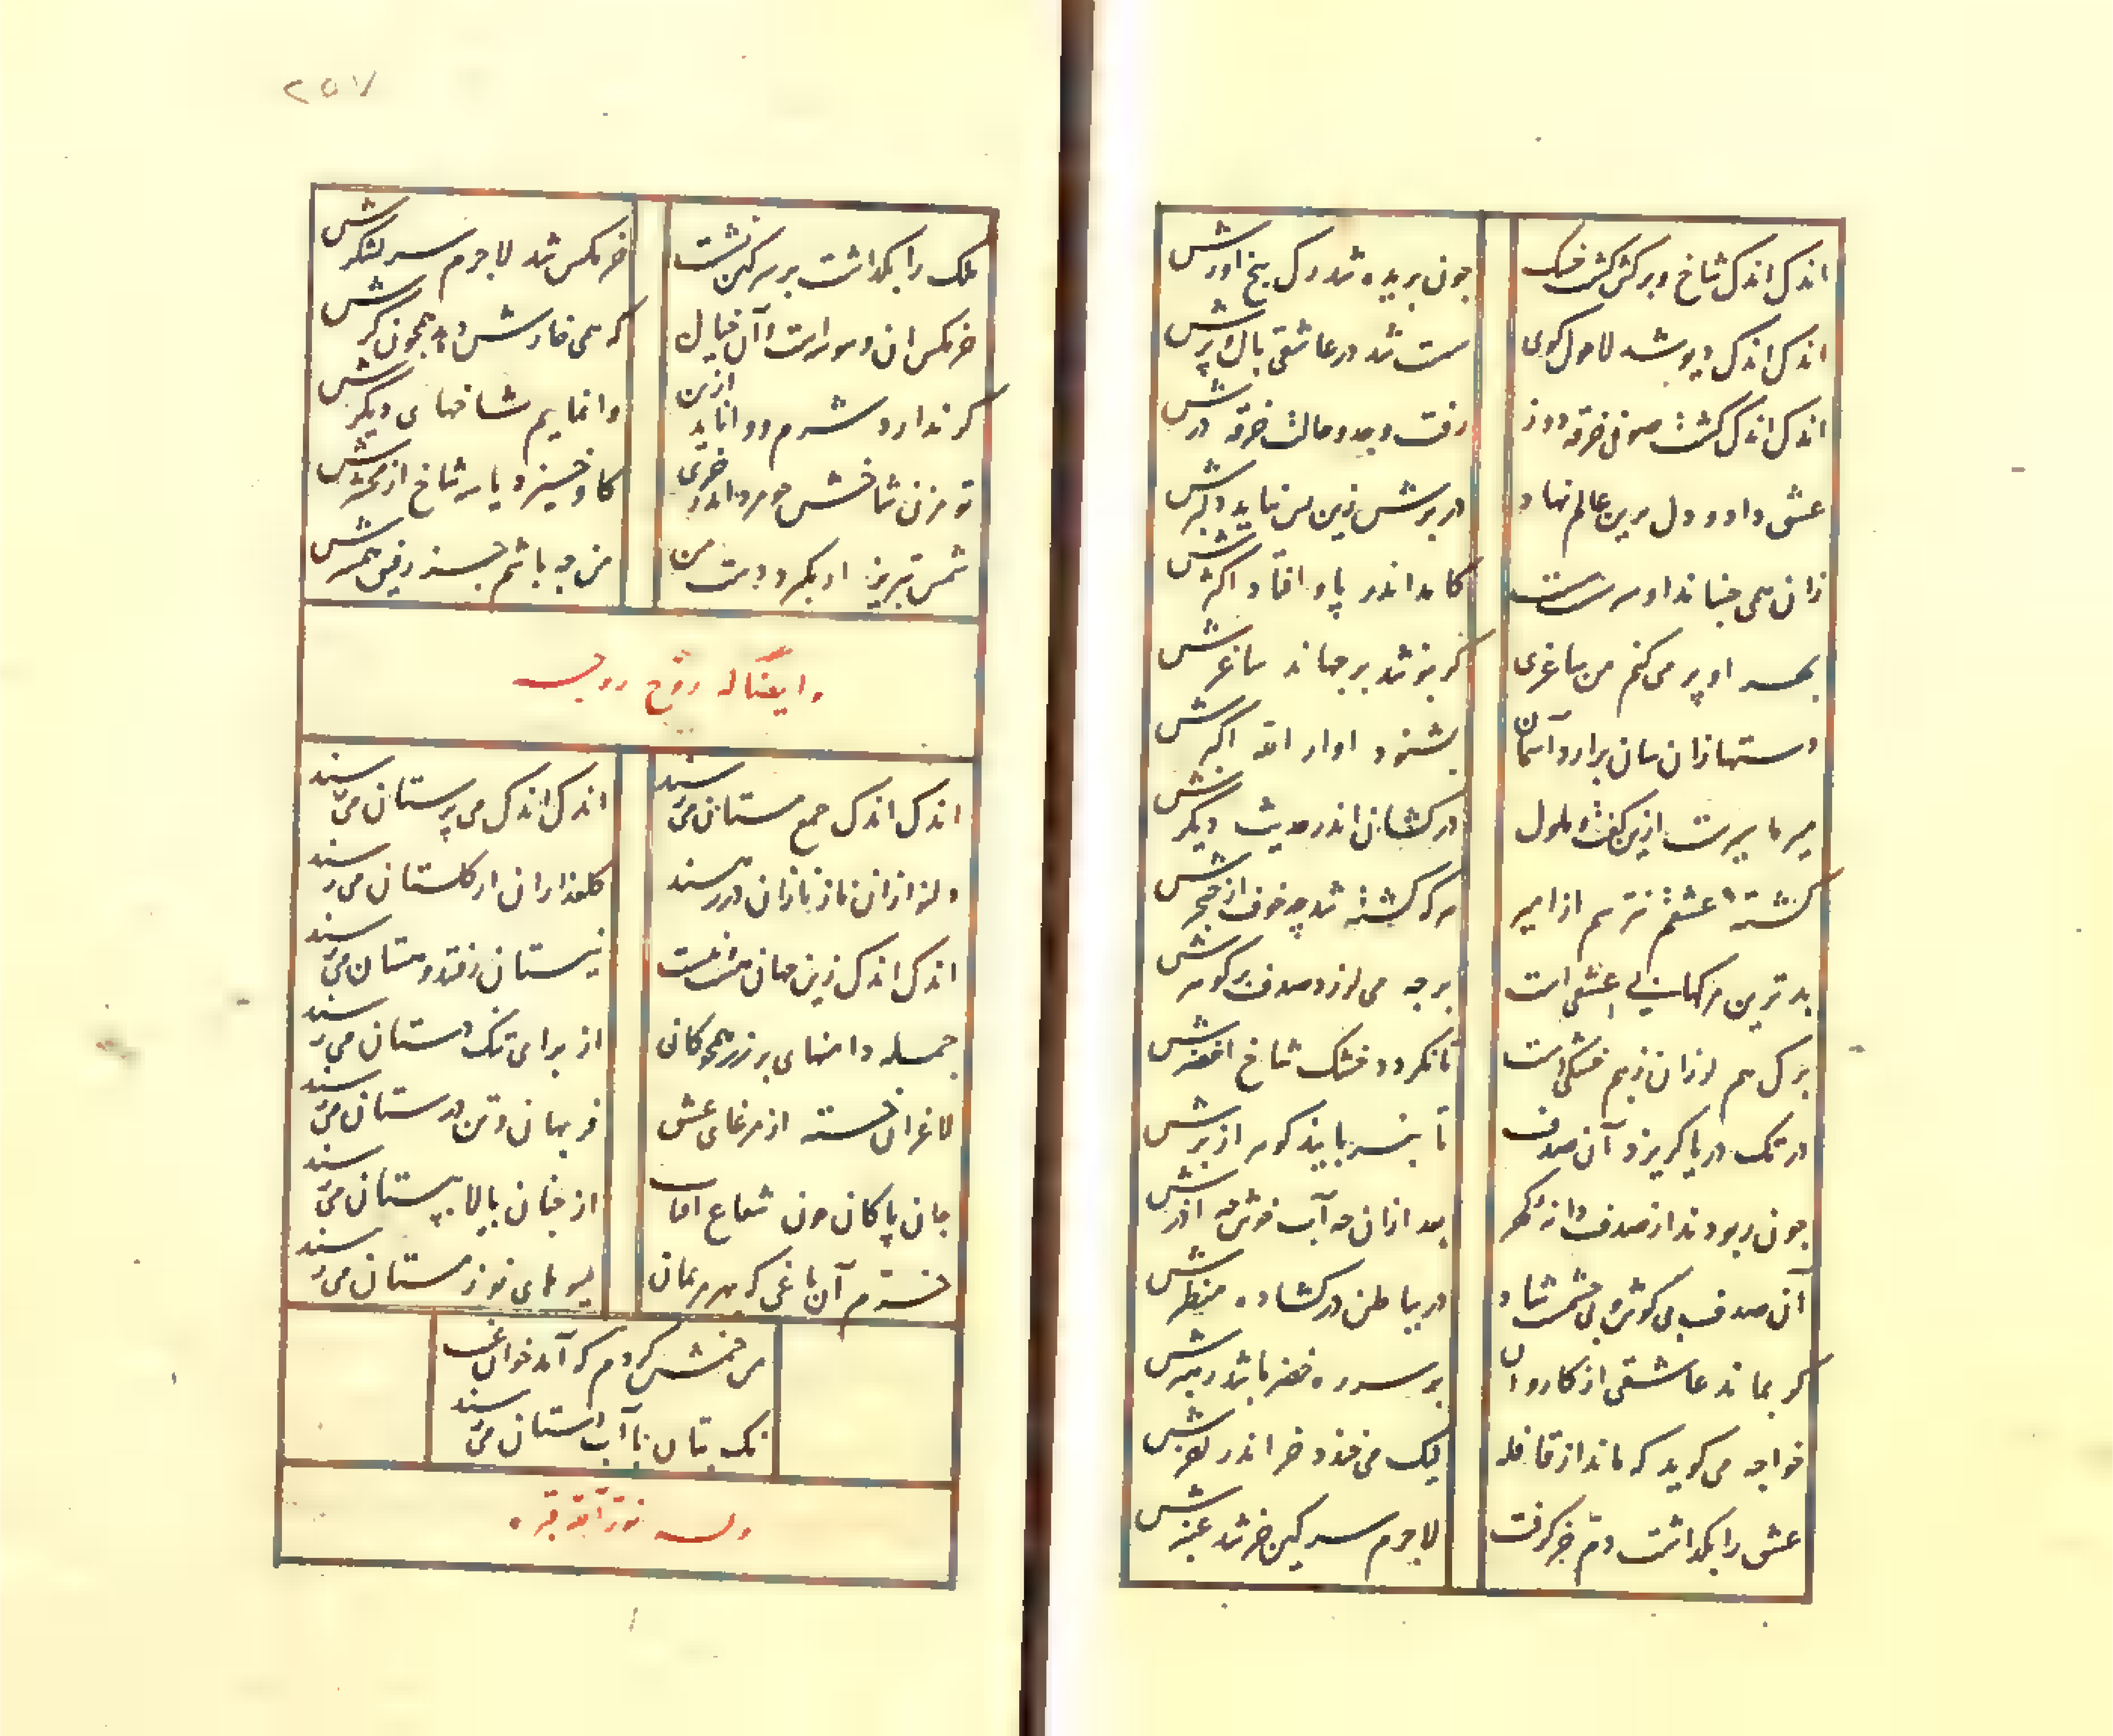 اندک اندک شاخ و برکش کشت خشک
چون بریده شد رک بیخ اورش
اندک اندک دیو شد لاحول کوی
سست شد در عاشقی بال و پرش
اندک اندک کشت صوفی خرقه دوز
رفت وجد و حالت خرقه درش
عشق داد و دل برین عالم نهاد
در برش زین پس نیاید دلبرش
زان همی جنباند او سر سست سست
کامد اندر پا و افتاد اکثرش
بهر او پر می کنم من ساغری
کر بنوشد برجهاند ساغرش
دستها زان سان برارد آسمان
بشنود اواز الله اکبرش
میر ما سیرست ازین کفت و ملول
درکشان اندر حدیث دیکرش
کشته عشقم نترسم از امیر
هر که کشته شد چه خوف از خنجرش
بدترین مرکها بی عشقی است
بر چه می لرزد صدف بر کوهرش
برک هم لرزان ز بیم خشکی است
تا نکردد خشک شاخ اخضرش
در تک دریا کریزد آن صدف
تا بنربایند کوهر از برش
چون ربودند از صدف دانه کهر
بعد ازان چه آب خوش چه آذرش
آن صدف بی کوش و بی چشم شاد
در بباطن درکشاده منظرش
کر بماند عاشقی از کاروان
بر سر ره خضر باشد رهبرش
خواجه می کوید که ماند از قافله
لیک می خندد خر اندر آخرش
عشق را بکذاشت و دم خر کرفت
لاجرم سرکین خر شد عنبرش
۲۵۷
ملک را بکذاشت بر سرکین نشست
خرمکس شد لاجرم سرلشکرش
خرمکس ان وسوراست و آن خیال
که همی خارش دهد همچون کرش
کر ندارد شرم و وا ناید ازین
وانمایم شاخهای دیکرش
تو مزن شاخش چو مرد اندر خری
کاو خیزد با سه شاخ از محشرش
شمس تبریز ار بکیرد دست من
من چه باشم جز رفیق همرش
وایضا له روح روحه
اندک اندک جمع مستان می رسند
اندک اندک می پرستان می رسند
دلنوازان نازنازان در رسند
کلعذاران از کلستان می رسند
اندک اندک زین جهان هست نیست
نیستان رفتند و هستان می رسند
جمله دامنهای پر زر همچو کان
از برای تنک دستان می رسند
لاغران خسته از مرغای عشق
فربهان و تن درستان می رسند
جان پاکان چون شعاع افتاب
از چنان بالا بپستان می رسند
خرم آن باغی که بهر مریمان
میوهای نو زمستان می رسند
من خمش کردم که آمد خوان غیب
نک بتان با آب دستان می رسند
وله نور الله قبره